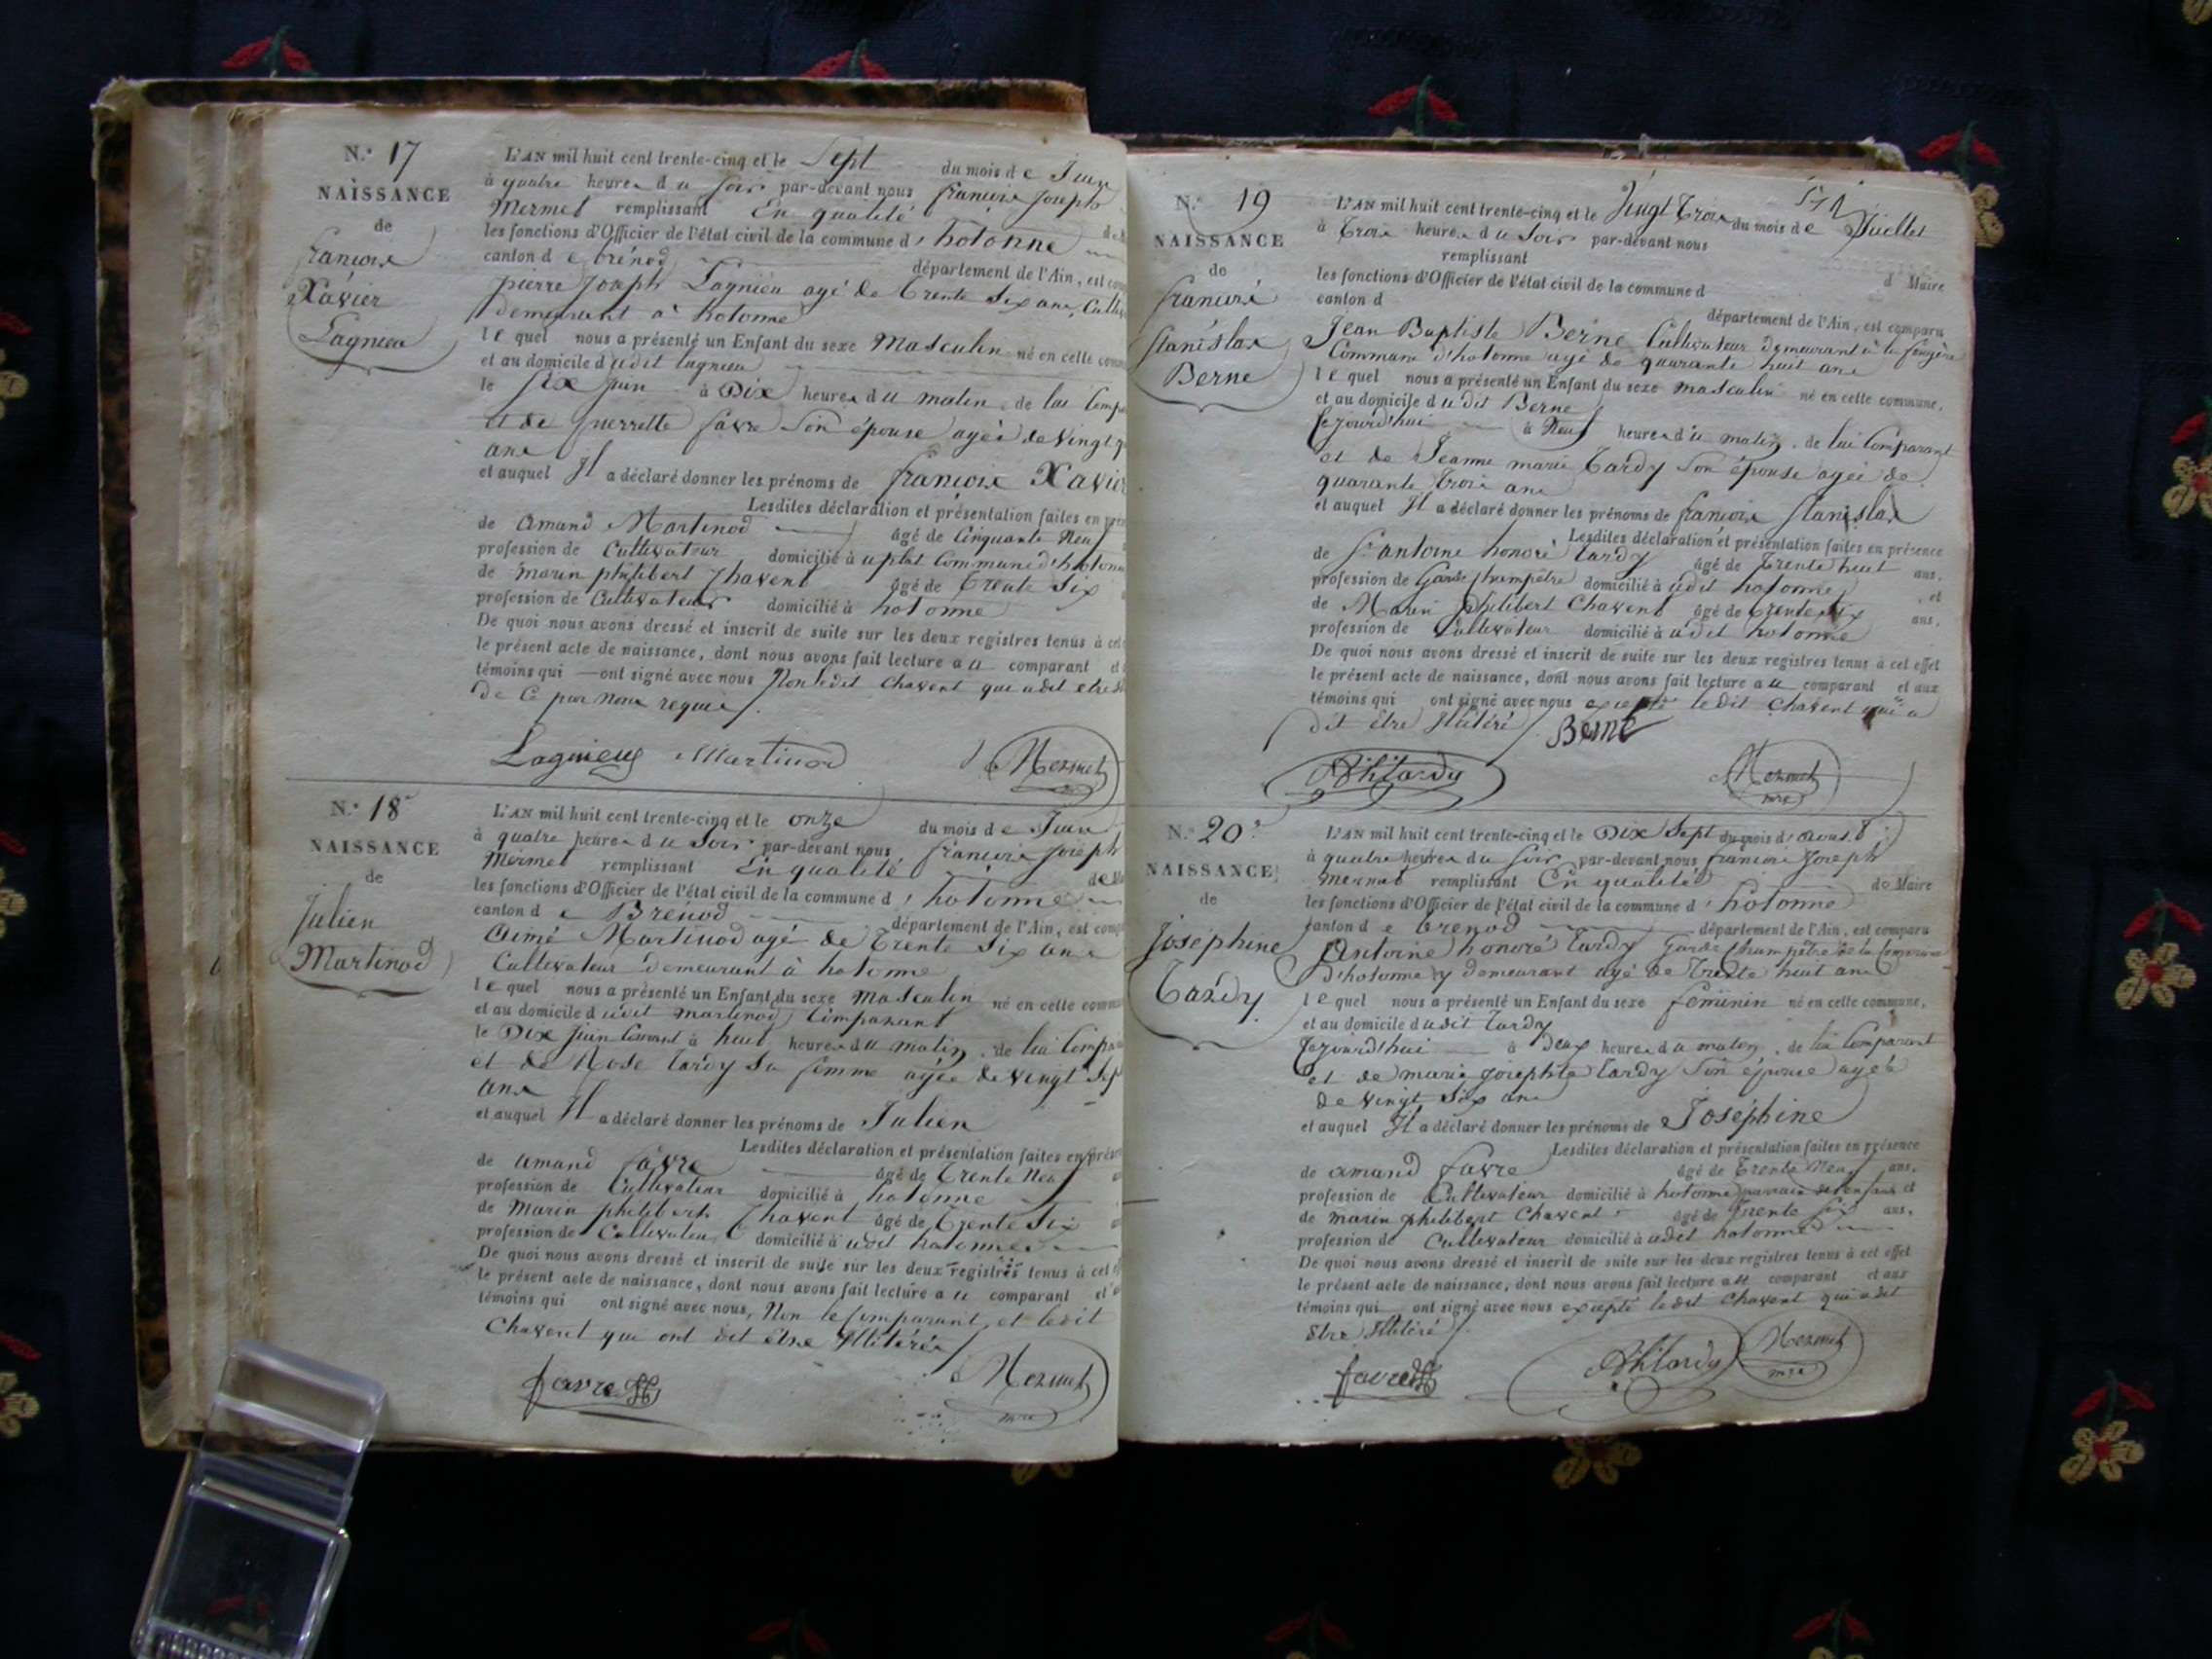 N.° 17
NAISSANCE
de
françois
Xavier
Lagnieu
L'AN mil huit cent trente-cinq et le Sept du mois de Juin
à quatre heures du soir par-devant nous françois Joseph
Mermet remplissant En qualité
les fonctions d'Officier de l'état civil de la commune d'hotonne
canton de brénod département de l'Ain, est
pierre Joseph Lagnieu agé de trente six ans,
demeurant à hotonne
lequel nous a présenté un Enfant du sexe Masculin né en cette
et au domicile dudit lagnieu
le six juin à Dix heures du matin, de lui
et de pierrette favre son épouse agée de vingt
ans
et auquel Il a déclaré donner les prénoms de françois Xavier
Lesdites déclaration et présentation faites en
de amand Martinod âgé de Cinquante Neuf
profession de Cultivateur domicilié à commune d'hotonne
de marin philibert Chavent âgé de trente six
profession de Cultivateur domicilié à hotonne
De quoi nous avons dressé et inscrit de suite sur les deux registres tenus à cet
le présent acte de naissance, dont nous avons fait lecture au comparant et
témoins qui ont signé avec nous Non ledit Chavent qui a dit etre
de Ce par nous requis
Lagnieu Martinod Mermet
N.° 18
NAISSANCE
de
Julien
Martinod
L'AN mil huit cent trente-cinq et le onze du mois de Juin
à quatre heures du soir par-devant nous françois Joseph
Mermet remplissant En qualité
les fonctions d'Officier de l'état civil de la commune d'hotonne
canton de Brénod département de l'Ain, est
Aimé Martinod agé de trente six ans
Cultivateur demeurant à hotonne
lequel nous a présenté un Enfant du sexe Masculin né en cette
et au domicile dudit martinod Comparant
le Dix juin Courant à huit heures du matin, de lui
et de Rose tardy sa femme agée de vingt
ans
et auquel Il a déclaré donner les prénoms de Julien
Lesdites déclaration et présentation faites en
de amand favre âgé de trente Neuf
profession de Cultivateur domicilié à hotonne
de Marin philibert Chavent âgé de trente six
profession de Cultivateur domicilié à udit hotonne
De quoi nous avons dressé et inscrit de suite sur les deux registres tenus à cet
le présent acte de naissance, dont nous avons fait lecture au comparant et
témoins qui ont signé avec nous, Non le Comparant et ledit
Chavent qui ont dit être Illitérés
favre Mermet
mre
N.° 19
NAISSANCE
de
françois
Stanislas
Berne
L'AN mil huit cent trente-cinq et le Vingt trois du mois de Juillet
à trois heures du soir par-devant nous
remplissant d Maire
les fonctions d'Officier de l'état civil de la commune d
canton d département de l'Ain, est comparu
Jean Baptiste Berne Cultivateur demeurant à
Commune d'hotonne agé de quarante huit ans
lequel nous a présenté un Enfant du sexe masculin né en cette commune,
et au domicile dudit Berne
Cejourd'hui à Neuf heures du matin, de lui Comparant
et de Jeanne marie tardy son épouse agée de
quarante trois ans
et auquel Il a déclaré donner les prénoms de françois Stanislas
Lesdites déclaration et présentation faites en présence
de antoine honoré tardy âgé de trente huit ans,
profession de Garde champêtre domicilié à udit hotonne, et
de Marin philibert Chavent âgé de trente six ans,
profession de Cultivateur domicilié à udit hotonne
De quoi nous avons dressé et inscrit de suite sur les deux registres tenus à cet effet
le présent acte de naissance, dont nous avons fait lecture au comparant et aux
témoins qui ont signé avec nous excepté ledit Chavent qui a
dit être Illitéré
Berne
Ahtardy Mermet
mre
N.° 20
NAISSANCE
de
Joséphine
Tardy
L'AN mil huit cent trente-cinq et le Dix Sept du mois d'aoust
à quatre heures du soir par-devant nous françois Joseph
mermet remplissant En qualité de Maire
les fonctions d'Officier de l'état civil de la commune d'hotonne
canton de brenod département de l'Ain, est comparu
Antoine honoré tardy Garde Champêtre de la Commune
d'hotonne y demeurant agé de trente huit ans
lequel nous a présenté un Enfant du sexe féminin né en cette commune,
et au domicile dudit tardy
Cejourd'hui à deux heures du matin, de lui Comparant
et de marie josephte tardy son épouse agée
de vingt six ans
et auquel Il a déclaré donner les prénoms de Joséphine
Lesdites déclaration et présentation faites en présence
de amand favre âgé de trente Neuf ans,
profession de Cultivateur domicilié à hotonne et
de marin philibert Chavent âgé de trente six ans,
profession de Cultivateur domicilié à udit hotonne
De quoi nous avons dressé et inscrit de suite sur les deux registres tenus à cet effet
le présent acte de naissance, dont nous avons fait lecture au comparant et aux
témoins qui ont signé avec nous excepté ledit Chavent qui a dit
être Illitéré
favre Ahtardy Mermet
mre